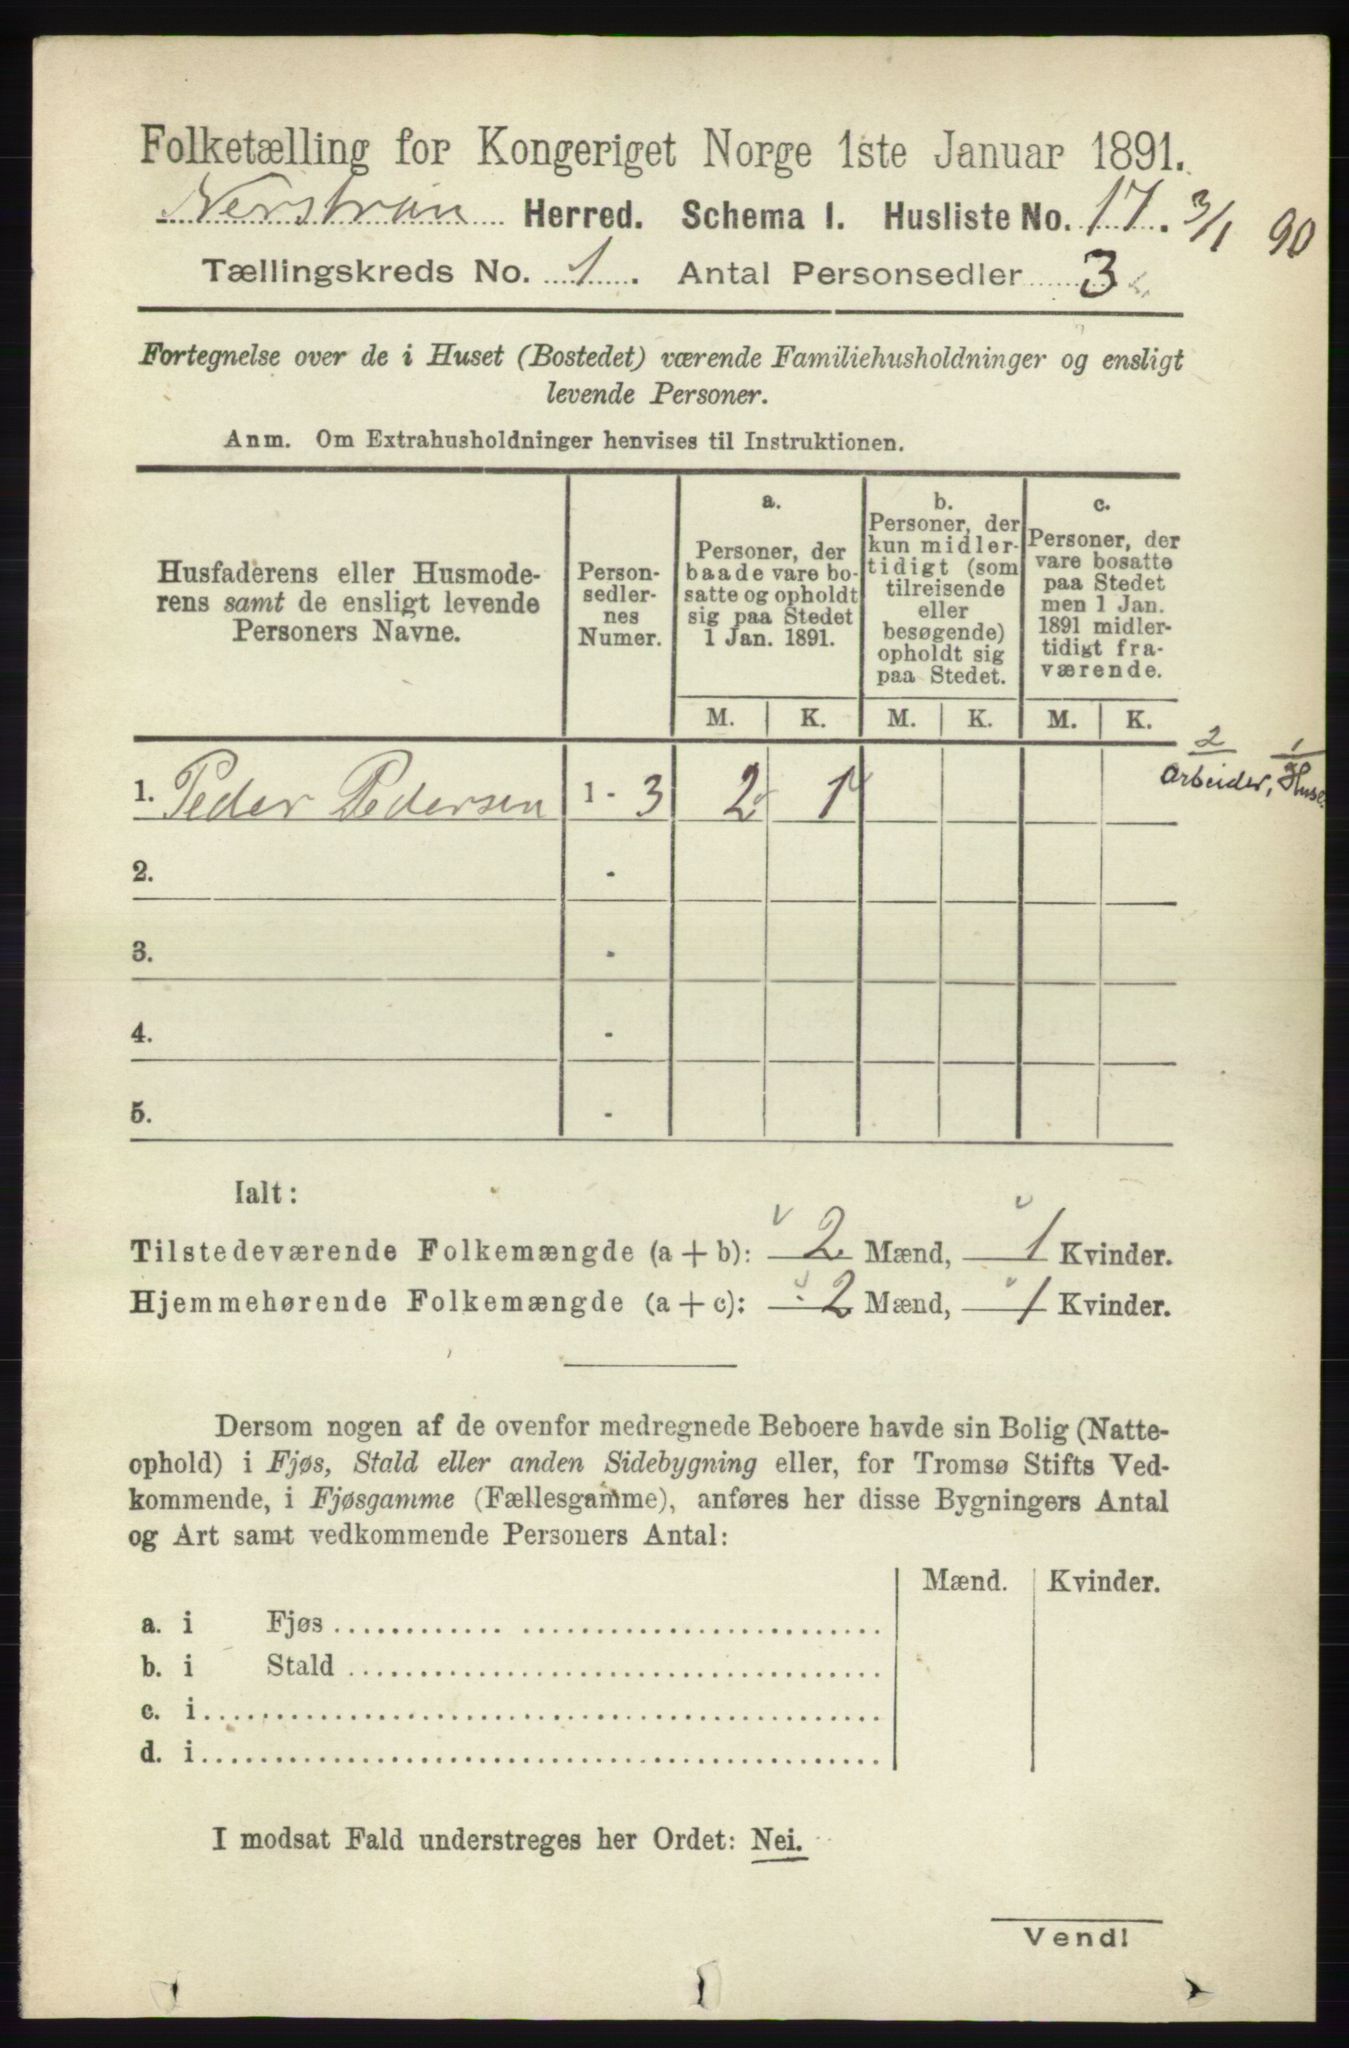 Folketælling for Kongeriget Norge 1ste Januar 1891.
Nerstran Herred. Schema 1. Husliste No. 17. 3/1 90
Tællingskreds No. 1. Antal Personsedler 3
Fortegnelse over de i Huset (Bostedet) værende Familiehusholdninger og ensligt
levende Personer.
Anm. Om Extrahusholdninger henvises til Instruktionen.
Husfaderens eller Husmode-
rens samt de ensligt levende
Personers Navne.
Person-
sedler-
nes
Numer.
a.
Personer, der
baade vare bo-
satte og opholdt
sig paa Stedet
1 Jan. 1891.
b.
Personer, der
kun midler-
tidigt (som
tilreisende
eller
besøgende)
opholdt sig
paa Stedet.
c.
Personer, der
vare bosatte
paa Stedet
men 1 Jan.
1891 midler-
tidigt fra-
værende.
M. K. M. K. M. K.
2 1
1. Peder Pedersen 1 - 3 2 1 Arbeider, Huse.
2. -
3. -
4. -
5. -
Ialt:
Tilstedeværende Folkemængde (a + b): 2 Mænd, 1 Kvinder.
Hjemmehørende Folkemængde (a + c): 2 Mænd, 1 Kvinder.
Dersom nogen af de ovenfor medregnede Beboere havde sin Bolig (Natte-
ophold) i Fjøs, Stald eller anden Sidebygning eller, for Tromsø Stifts Ved-
kommende, i Fjøsgamme (Fællesgamme), anføres her disse Bygningers Antal
og Art samt vedkommende Personers Antal:
Mænd. Kvinder.
a. i Fjøs
b. i Stald
c. i
d. i
I modsat Fald understreges her Ordet: Nei.
Vend!